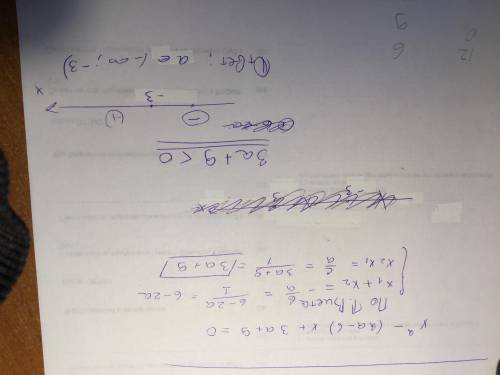 x² - (2a-6)x + 3a + 9 = 0
По Т. Виета
x₁ + x₂ = -b/a = 6-2a/1 = 6-2a
x₂x₁ = c/a = 3a+9/1 = 3a+9
3a + 9 < 0
-3
x
Ответ: a ∈ (-∞; -3)
12 6
0 9